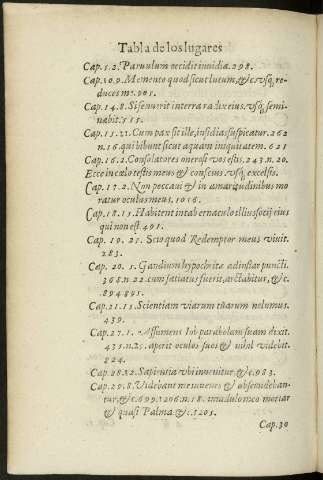 Tabla de los lugares
Cap. 5. 2. Paruulum occidit inuidia. 298.
Cap. 10. 9. Memento quod sicut lutum, &c. vsq; re-
duces me. 901.
Cap. 14. 8. Si senuerit in terra radix eius. vsq; semi-
nabit. 515.
Cap. 15. 21. Cum pax sit ille, insidias suspicatur. 262
n. 16. qui bibunt sicut aquam iniquitatem. 621
Cap. 16. 2. Consolatores onerosi vos estis. 243. n. 20.
Ecce in cælo testis meus & conscius. vsq; excelsis.
Cap. 17. 2. Non peccaui & in amaritudinibus mo
ratur oculus meus. 1016.
Cap. 18. 15. Habitent in tabernaculo illius socij eius
qui non est 491.
Cap. 19. 25. Scio quod Redemptor meus viuit.
283.
Cap. 20. 5. Gaudium hypocritæ ad instar puncti.
368. n. 22. cum satiatus fuerit, arctabitur, &c.
894 891.
Cap. 21. 15. Scientiam viarum tuarum nolumus.
439.
Cap. 27. 1. Assumens Iob parabolam suam dixit.
435. n. 25. aperit oculos suos & nihil videbit.
824.
Cap. 28. 12. Sapientia vbi inuenitur, &c. 983.
Cap. 29. 8. Videbant me iuuenes & abscondeban-
tur, &c. 699. 1206. n. 18. in nidulo meo moriar
& quasi Palma &c. 1201.
Cap. 30